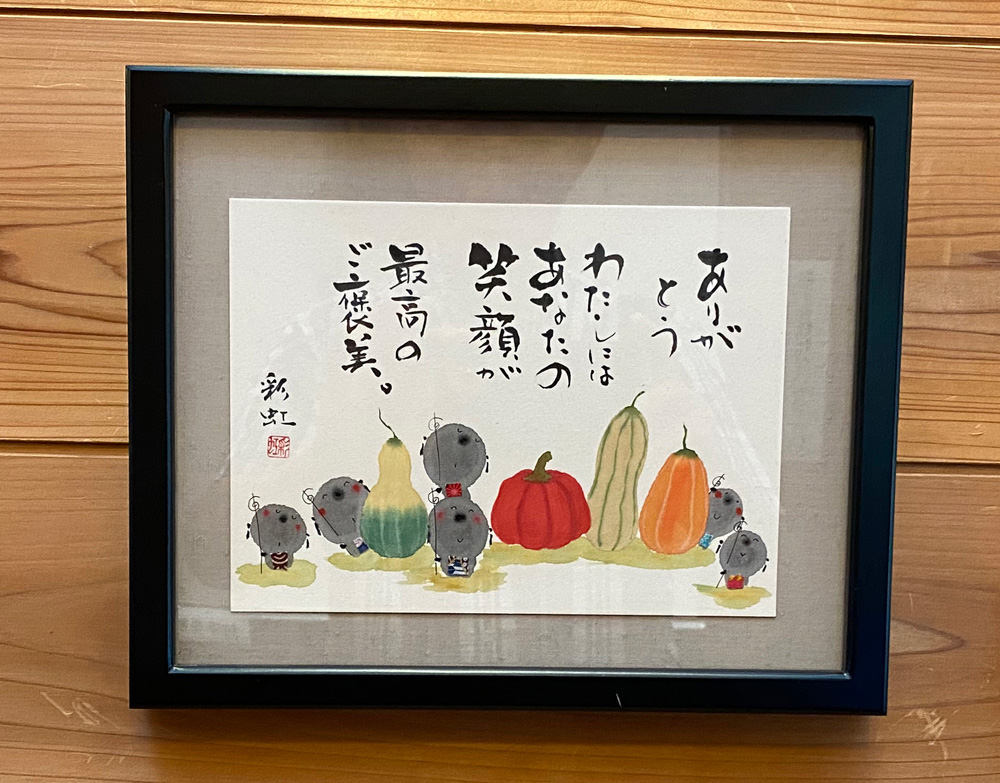 ありが
とう
わたしには
あなたの
笑顔が
最高の
ご褒美。
彩虹
彩虹